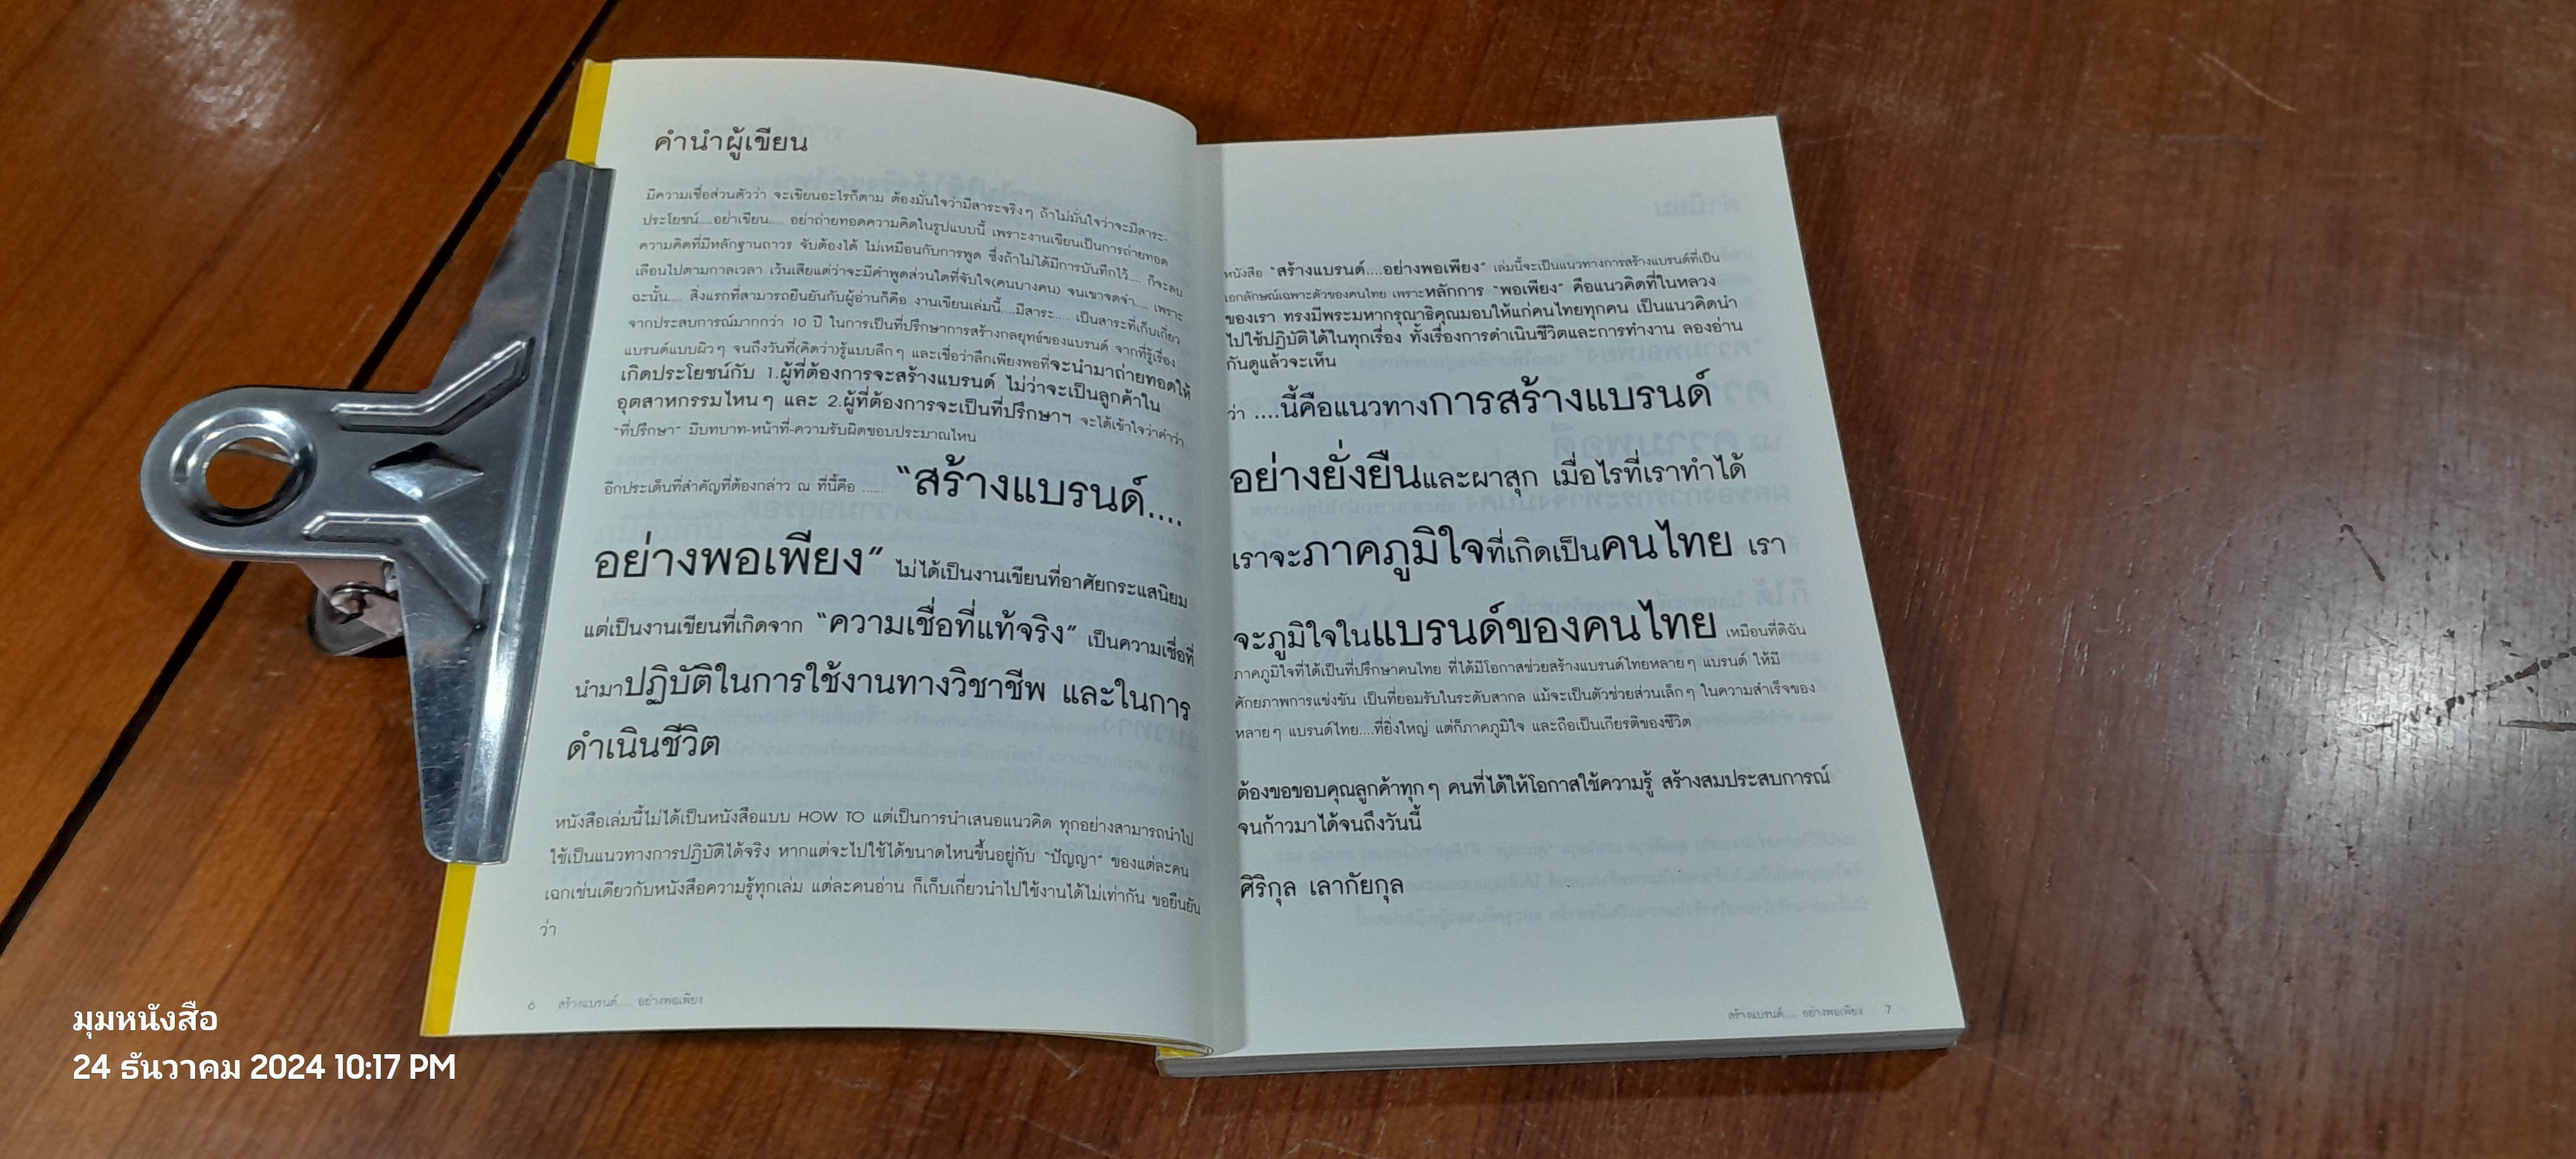 คำนำผู้เขียน
มีความเชื่อส่วนตัวว่า จะเขียนอะไรก็ตาม ต้องมั่นใจว่ามีสาระจริงๆ ถ้าไม่มั่นใจว่าจะมีสาระ-
ประโยชน์....อย่าเขียน.... อย่าถ่ายทอดความคิดในรูปแบบนี้ เพราะงานเขียนเป็นการถ่ายทอด
ความคิดที่มีหลักฐานถาวร จับต้องได้ ไม่เหมือนกับการพูด ซึ่งถ้าไม่ได้มีการบันทึกไว้.... ก็จะลบ
เลือนไปตามกาลเวลา เว้นเสียแต่ว่าจะมีคำพูดส่วนใดที่จับใจ(คนบางคน) จนเขาจดจำ.... เพราะ
ฉะนั้น.... สิ่งแรกที่สามารถยืนยันกับผู้อ่านก็คือ งานเขียนเล่มนี้....มีสาระ.... เป็นสาระที่เก็บเกี่ยว
จากประสบการณ์มากกว่า 10 ปี ในการเป็นที่ปรึกษาการสร้างกลยุทธ์ของแบรนด์ จากที่รู้เรื่อง
แบรนด์แบบผิวๆ จนถึงวันที่(คิดว่า)รู้แบบลึกๆ และเชื่อว่าลึกเพียงพอที่จะนำมาถ่ายทอดให้
เกิดประโยชน์กับ 1.ผู้ที่ต้องการจะสร้างแบรนด์ ไม่ว่าจะเป็นลูกค้าใน
อุตสาหกรรมไหนๆ และ 2.ผู้ที่ต้องการจะเป็นที่ปรึกษาฯ จะได้เข้าใจว่าคำว่า
"ที่ปรึกษา" มีบทบาท-หน้าที่-ความรับผิดชอบประมาณไหน
อีกประเด็นที่สำคัญที่ต้องกล่าว ณ ที่นี้คือ ...... "สร้างแบรนด์....
อย่างพอเพียง" ไม่ได้เป็นงานเขียนที่อาศัยกระแสนิยม
แต่เป็นงานเขียนที่เกิดจาก "ความเชื่อที่แท้จริง" เป็นความเชื่อที่
นำมาปฏิบัติในการใช้งานทางวิชาชีพ และในการ
ดำเนินชีวิต
หนังสือเล่มนี้ไม่ได้เป็นหนังสือแบบ HOW TO แต่เป็นการนำเสนอแนวคิด ทุกอย่างสามารถนำไป
ใช้เป็นแนวทางการปฏิบัติได้จริง หากแต่จะไปใช้ได้ขนาดไหนขึ้นอยู่กับ "ปัญญา" ของแต่ละคน
เฉกเช่นเดียวกับหนังสือความรู้ทุกเล่ม แต่ละคนอ่าน ก็เก็บเกี่ยวนำไปใช้งานได้ไม่เท่ากัน ขอยืนยัน
ว่า
6 สร้างแบรนด์.... อย่างพอเพียง
หนังสือ "สร้างแบรนด์....อย่างพอเพียง" เล่มนี้จะเป็นแนวทางการสร้างแบรนด์ที่เป็น
เอกลักษณ์เฉพาะตัวของคนไทย เพราะหลักการ "พอเพียง" คือแนวคิดที่ในหลวง
ของเรา ทรงมีพระมหากรุณาธิคุณมอบให้แก่คนไทยทุกคน เป็นแนวคิดนำ
ไปใช้ปฏิบัติได้ในทุกเรื่อง ทั้งเรื่องการดำเนินชีวิตและการทำงาน ลองอ่าน
กันดูแล้วจะเห็น
ว่า ....นี้คือแนวทางการสร้างแบรนด์
อย่างยั่งยืนและผาสุก เมื่อไรที่เราทำได้
เราจะภาคภูมิใจที่เกิดเป็นคนไทย เรา
จะภูมิใจในแบรนด์ของคนไทย เหมือนที่ดิฉัน
ภาคภูมิใจที่ได้เป็นที่ปรึกษาคนไทย ที่ได้มีโอกาสช่วยสร้างแบรนด์ไทยหลายๆ แบรนด์ ให้มี
ศักยภาพการแข่งขัน เป็นที่ยอมรับในระดับสากล แม้จะเป็นตัวช่วยส่วนเล็กๆ ในความสำเร็จของ
หลายๆ แบรนด์ไทย....ที่ยิ่งใหญ่ แต่ก็ภาคภูมิใจ และถือเป็นเกียรติของชีวิต
ต้องขอขอบคุณลูกค้าทุกๆ คนที่ได้ให้โอกาสใช้ความรู้ สร้างสมประสบการณ์
จนก้าวมาได้จนถึงวันนี้
ศิริกุล เลากัยกุล
สร้างแบรนด์.... อย่างพอเพียง 7
มุมหนังสือ
24 ธันวาคม 2024 10:17 PM